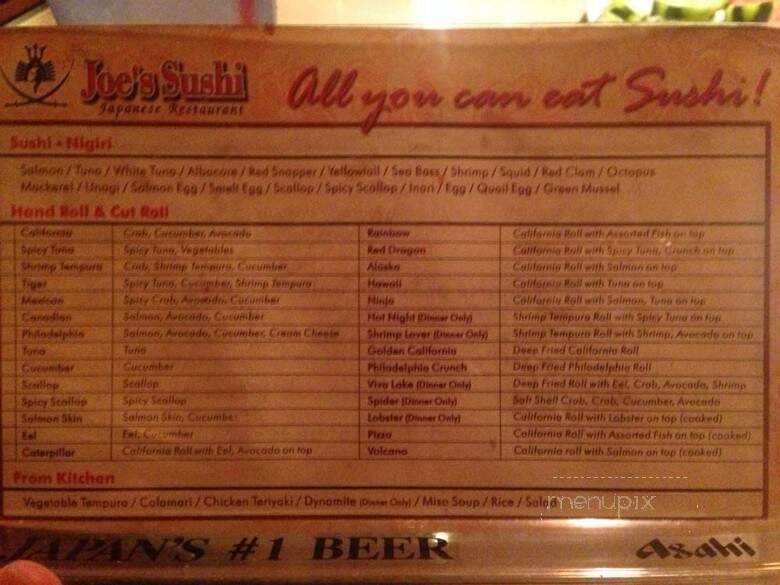 Joe's Sushi
Japanese Restaurant
All you can eat Sushi!
Sushi • Nigiri
Salmon / Tuna / White Tuna / Albacore / Red Snapper / Yellowtail / Sea Bass / Shrimp / Squid / Red Clam / Octopus
Mackerel / Unagi / Salmon Egg / Smelt Egg / Scallop / Spicy Scallop / Inari / Egg / Quail Egg / Green Mussel
Hand Roll & Cut Roll
California Crab, Cucumber, Avocado Rainbow California Roll with Assorted Fish on top
Spicy Tuna Spicy Tuna, Vegetables Red Dragon California Roll with Spicy Tuna, Crunch on top
Shrimp Tempura Crab, Shrimp Tempura, Cucumber Alaska California Roll with Salmon on top
Tiger Spicy Tuna, Cucumber, Shrimp Tempura Hawaii California Roll with Tuna on top
Mexican Spicy Crab, Avocado, Cucumber Ninja California Roll with Salmon, Tuna on top
Canadian Salmon, Avocado, Cucumber Hot Night (Dinner Only) Shrimp Tempura Roll with Spicy Tuna on top
Philadelphia Salmon, Avocado, Cucumber, Cream Cheese Shrimp Lover (Dinner Only) Shrimp Tempura Roll with Shrimp, Avocado on top
Tuna Tuna Golden California Deep Fried California Roll
Cucumber Cucumber Philadelphia Crunch Deep Fried Philadelphia Roll
Scallop Scallop Viva Lake (Dinner Only) Deep Fried Roll with Eel, Crab, Avocado, Shrimp
Spicy Scallop Spicy Scallop Spider (Dinner Only) Soft Shell Crab, Crab, Cucumber, Avocado
Salmon Skin Salmon Skin, Cucumber Lobster (Dinner Only) California Roll with Lobster on top (cooked)
Eel Eel, Cucumber Pizza California Roll with Assorted Fish on top (cooked)
Caterpillar California Roll with Eel, Avocado on top Volcano California roll with Salmon on top (cooked)
From Kitchen
Vegetable Tempura / Calamari / Chicken Teriyaki / Dynamite (Dinner Only) / Miso Soup / Rice / Salad
menupix
JAPAN'S #1 BEER Asahi